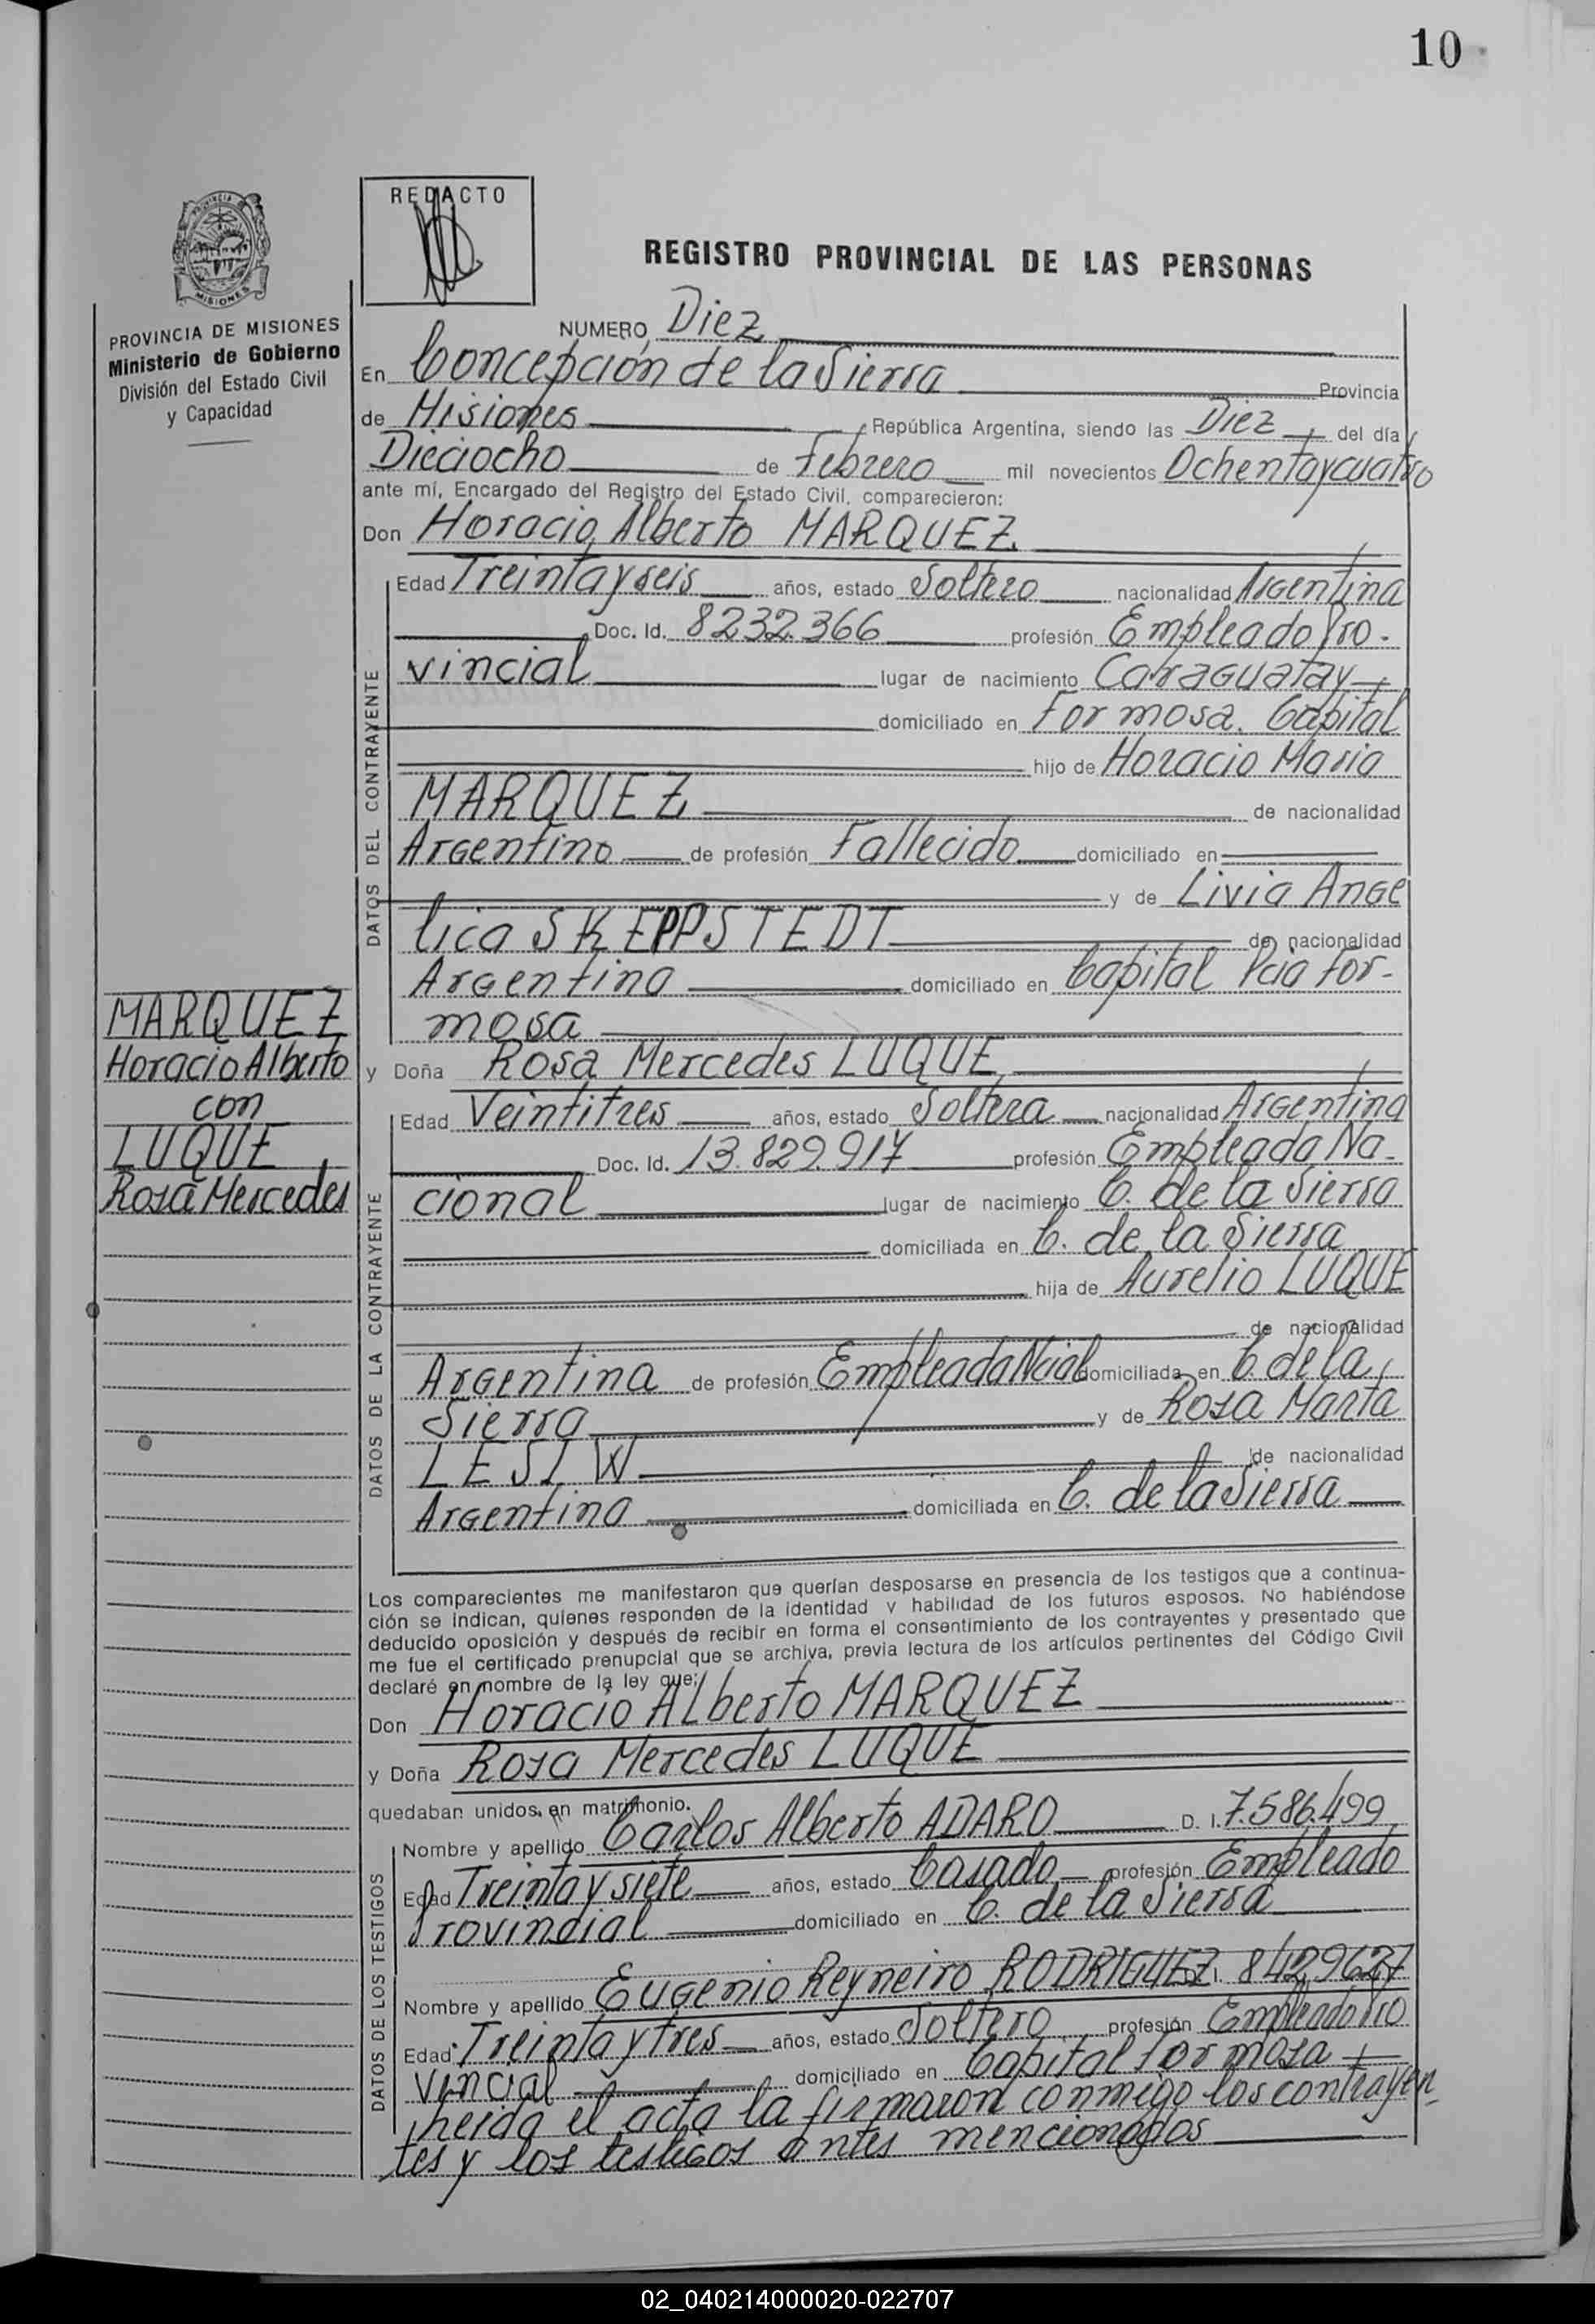 10
REDACTO
REGISTRO PROVINCIAL DE LAS PERSONAS
MISIONES
PROVINCIA DE MISIONES
Ministerio de Gobierno
División del Estado Civil
y Capacidad
NUMERO Diez
En Concepción de la Sierra Provincia
de Misiones República Argentina, siendo las Diez del día
Dieciocho de Febrero mil novecientos Ochentaycuatro
ante mí, Encargado del Registro del Estado Civil, comparecieron:
Don Horacio Alberto MARQUEZ
DATOS DEL CONTRAYENTE
Edad Treintayseis años, estado Soltero nacionalidad Argentina
Doc. Id. 8232.366 profesión Empleado Pro-
vincial lugar de nacimiento Caraguatay
domiciliado en Formosa. Capital
hijo de Horacio Mario
MARQUEZ de nacionalidad
Argentino de profesión Fallecido domiciliado en
y de Livia Ange
lica SKEPPSTEDT de nacionalidad
Argentina domiciliado en Capital Pcia For-
mosa
MARQUEZ
Horacio Alberto
con
LUQUE
Rosa Mercedes
y Doña Rosa Mercedes LUQUE
DATOS DE LA CONTRAYENTE
Edad Veintitres años, estado Soltera nacionalidad Argentina
Doc. Id. 13.829.917 profesión Empleada Na-
cional lugar de nacimiento C. de la Sierra
domiciliada en C. de la Sierra
hija de Aurelio LUQUE
de nacionalidad
Argentina de profesión Empleada Ncial domiciliada en C. de la
Sierra y de Rosa Marta
LESIW de nacionalidad
Argentina domiciliada en C. de la Sierra
Los comparecientes me manifestaron que querían desposarse en presencia de los testigos que a continua-
ción se indican, quienes responden de la identidad y habilidad de los futuros esposos. No habiéndose
deducido oposición y después de recibir en forma el consentimiento de los contrayentes y presentado que
me fue el certificado prenupcial que se archiva, previa lectura de los artículos pertinentes del Código Civil
declaré en nombre de la ley que:
Don Horacio Alberto MARQUEZ
y Doña Rosa Mercedes LUQUE
quedaban unidos en matrimonio.
DATOS DE LOS TESTIGOS
Nombre y apellido Carlos Alberto ADARO D. I. 7.586.499
Edad Treinta y siete años, estado Casado profesión Empleado
Provincial domiciliado en C. de la Sierra
Nombre y apellido Eugenio Reyneiro RODRIGUEZ D. I. 8429627
Edad Treinta y tres años, estado Soltero profesión Empleado Pro
vincial domiciliado en Capital Formosa
heida el acta la firmaron conmigo los contrayen-
tes y los testigos antes mencionados
02_040214000020-022707